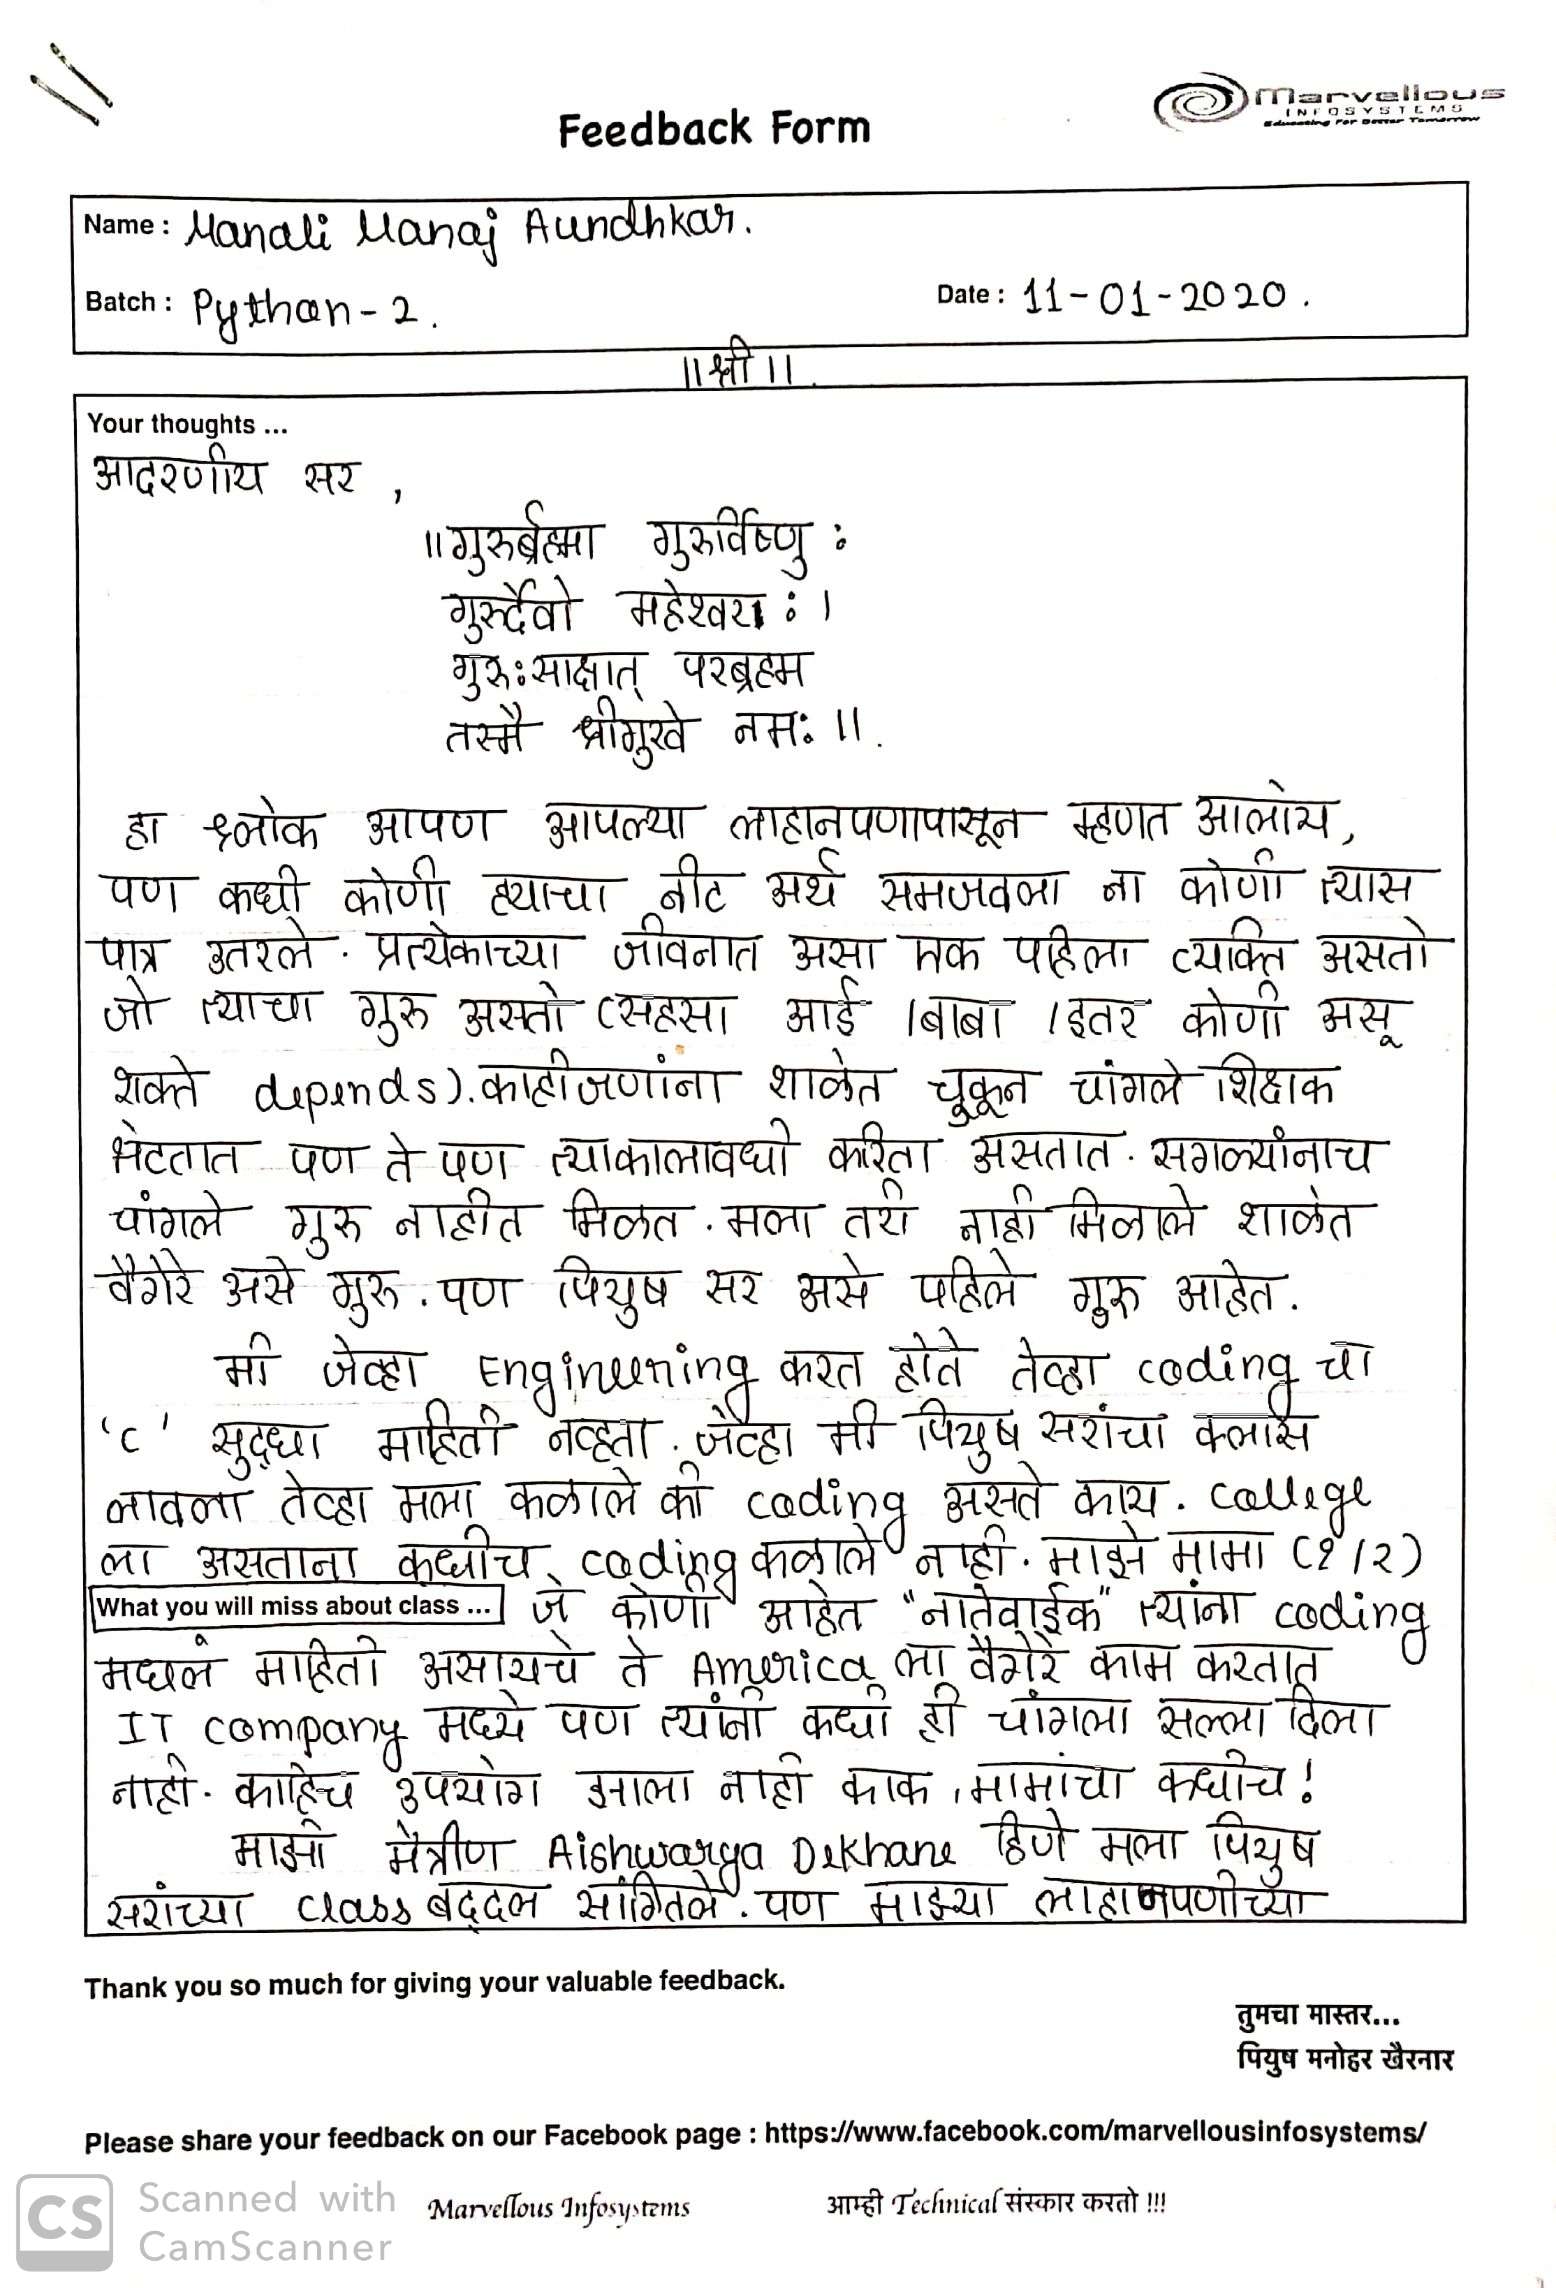 Marvellous
INFOSYSTEMS
Educating For Better Tomorrow
Feedback Form
Name : Manali Manoj Aundhkar.
Batch : Python - 2.
Date : 11-01-2020.
॥श्री॥.
Your thoughts ...
आदरणीय सर ,
॥गुरुर्ब्रह्मा गुरुर्विष्णु :
गुरुर्देवो महेश्वरा : ।
गुरु:साक्षात् परब्रह्म
तस्मै श्रीगुरवे नमः ॥.
हा श्लोक आपण आपल्या लाहानपणापासून म्हणत आलोय,
पण कधी कोणी ह्याचा नीट अर्थ समजवला ना कोणी त्यास
पात्र उतरले. प्रत्येकाच्या जीवनात असा एक पहिला व्यक्ति असतो
जो त्याचा गुरु असतो (सहसा आई /बाबा /इतर कोणी असू
शक्ते depends). काहीजणांना शाळेत चुकून चांगले शिक्षक
भेटतात पण ते पण त्याकालावधी करिता असतात. सगळ्यांनाच
चांगले गुरु नाहीत मिळत. मला तरी नाही मिळाले शाळेत
वैगेरे असे गुरु. पण पियुष सर असे पहिले गुरु आहेत.
मी जेव्हा Engineering करत होते तेव्हा coding चा
'c' सुद्धा माहिती नव्हता. जेव्हा मी पियुष सरांचा क्लास
लावला तेव्हा मला कळाले की coding असते काय. College
ला असताना कधीच coding कळाले नाही. माझे मामा (१/२)
What you will miss about class ... जे कोणी आहेत "नातेवाईक" त्यांना coding
मधलं माहिती असायचे ते America ला वैगेरे काम करतात
IT company मध्ये पण त्यांनी कधी ही चांगला सल्ला दिला
नाही. काहिच उपयोग झाला नाही काका, मामांचा कधीच!
माझी मैत्रीण Aishwarya Dekhane हिणे मला पियुष
सरांच्या class बद्दल सांगितले. पण माझ्या लाहानपणीच्या
Thank you so much for giving your valuable feedback.
तुमचा मास्तर...
पियुष मनोहर खैरनार
Please share your feedback on our Facebook page : https://www.facebook.com/marvellousinfosystems/
Marvellous Infosystems
आम्ही Technical संस्कार करतो !!!
CS
Scanned with
CamScanner